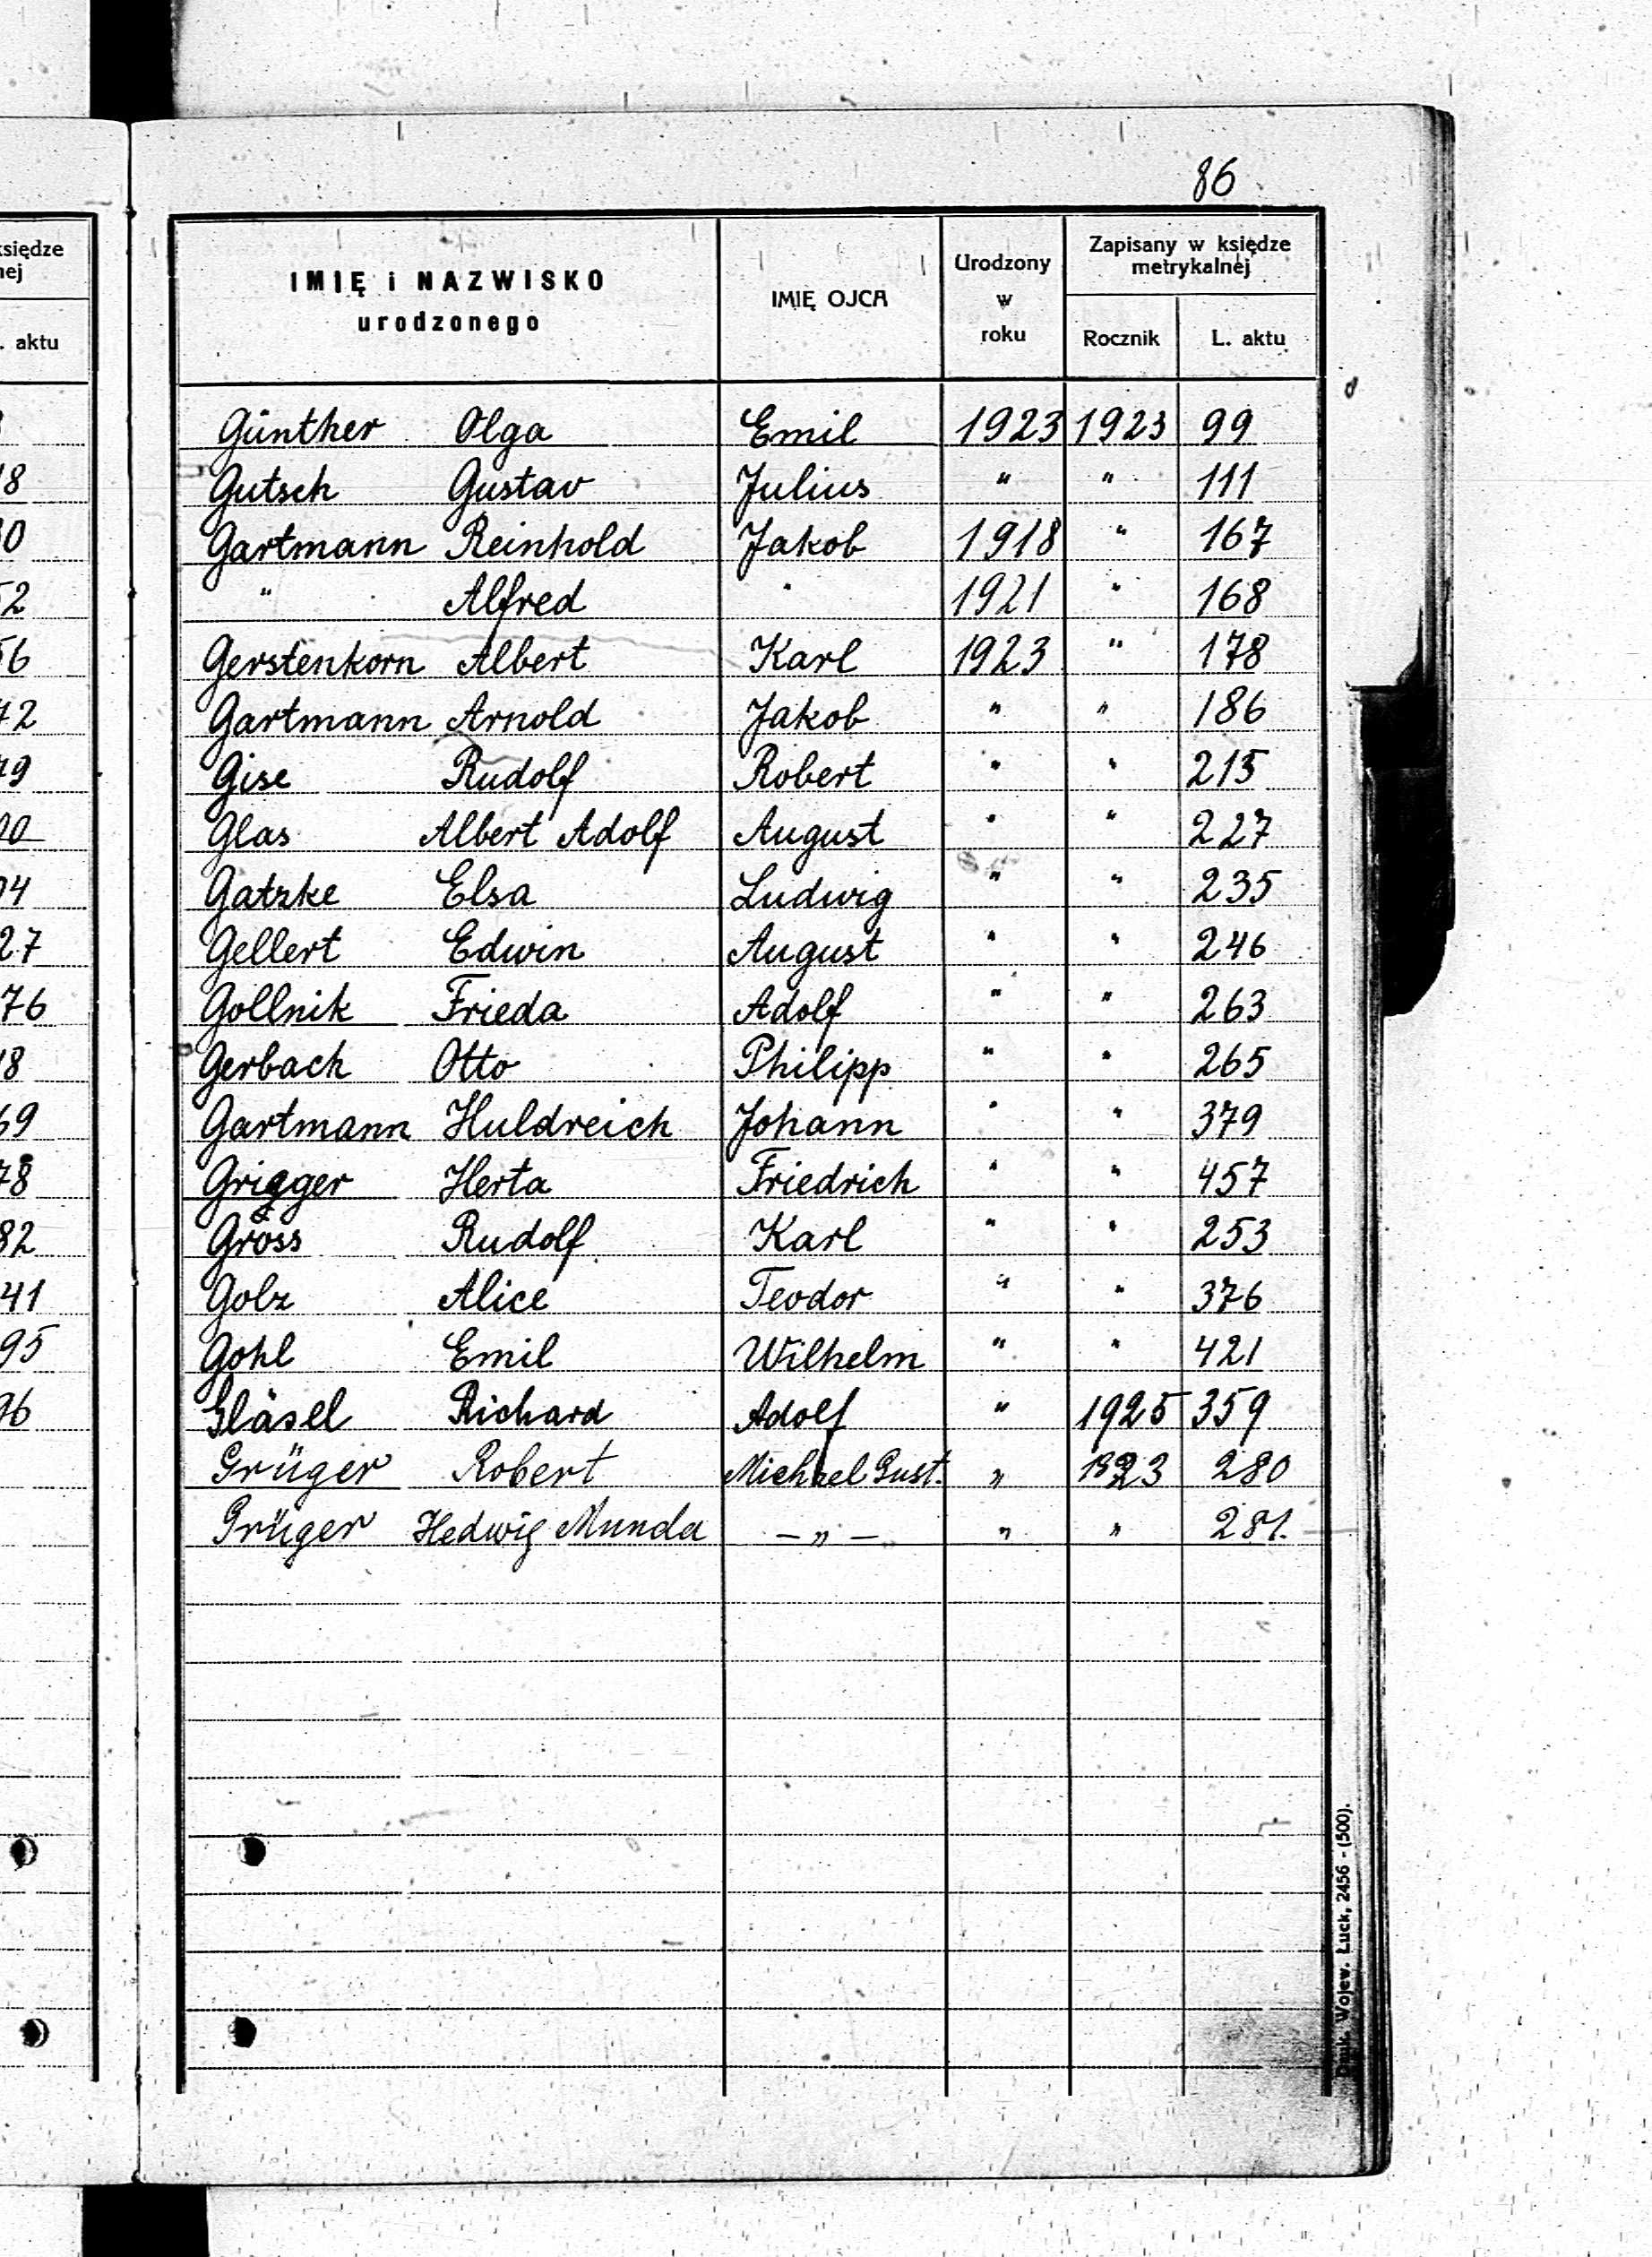 86
księdze
nej
. aktu
18
0
52
56
72
79
00
04
27
76
18
69
78
82
41
95
96
IMIĘ i NAZWISKO
urodzonego
IMIĘ OJCA
Urodzony
w
roku
Zapisany w księdze
metrykalnej
Rocznik
L. aktu
Günther Olga Emil 1923 1923 99
Gutsch Gustav Julius " " 111
Gartmann Reinhold Jakob 1918 " 167
" Alfred " 1921 " 168
Gerstenkorn Albert Karl 1923 " 178
Gartmann Arnold Jakob " " 186
Gise Rudolf Robert " " 215
Glas Albert Adolf August " " 227
Gatzke Elsa Ludwig " " 235
Gellert Edwin August " " 246
Gollnik Frieda Adolf " " 263
Gerbach Otto Philipp " " 265
Gartmann Huldreich Johann " " 379
Grigger Herta Friedrich " " 457
Gröss Rudolf Karl " " 253
Golz Alice Teodor " " 376
Gohl Emil Wilhelm " " 421
Gläsel Richard Adolf " 1925 359
Grüger Robert Michael Gust. " 1923 280
Grüger Hedwig Munda – " – " " 281.
Druk. Wojew. Łuck, 2456 - (500).